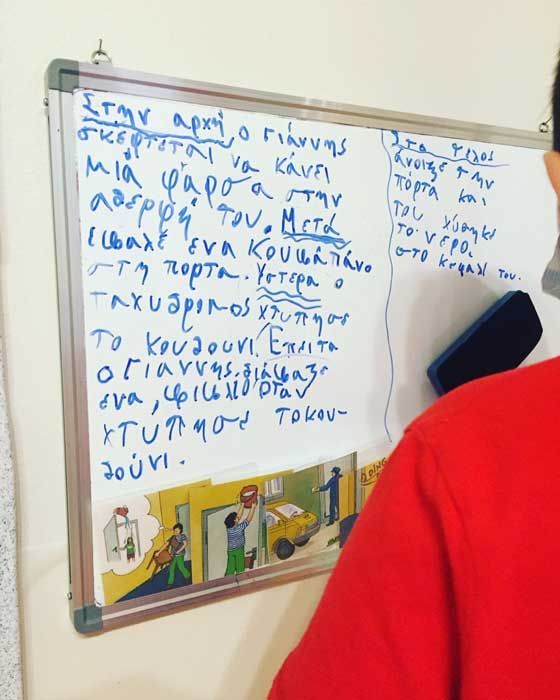 Στην αρχή ο Γιάννης
σκεφτεται να κάνει
μιά φάρσα στην
αδερφή του. Μετά
εβαλε ενα κουβά πάνο
στη πορτα. Υστερα ο
ταχυδρομος χτυπησε
το κουδουνι. Επειτα
ο Γιαννης διάβαζε
ενα, βιβλιο οταν
χτυπησε τοκου-
δούνι.
Στο τελος
άνοιξε την
πόρτα και
του χύθηκε
το νερο.
στο κεφαλι του.
DING